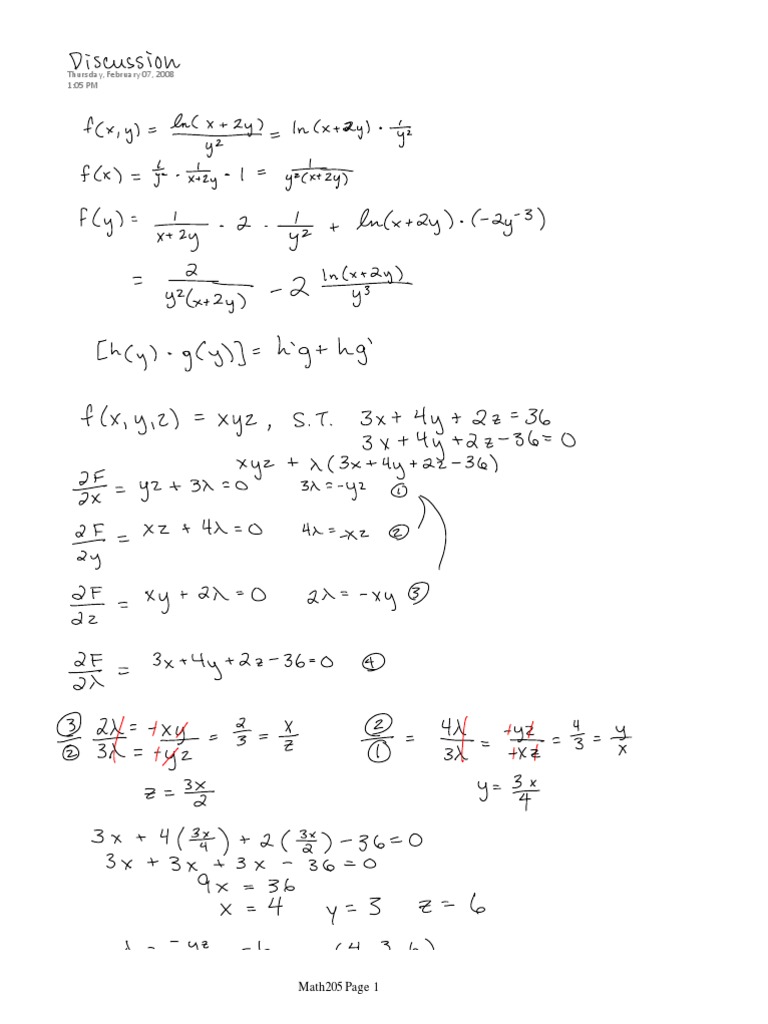 Discussion
Thursday, February 07, 2008
1:05 PM
f(x,y) = ln(x+2y)/y² = ln(x+2y) · 1/y²
f(x) = 1/y² · 1/(x+2y) · 1 = 1/(y²(x+2y))
f(y) = 1/(x+2y) · 2 · 1/y² + ln(x+2y) · (-2y⁻³)
= 2/(y²(x+2y)) - 2 ln(x+2y)/y³
[h(y) · g(y)] = h'g + hg'
f(x,y,z) = xyz, S.T. 3x + 4y + 2z = 36
3x + 4y + 2z - 36 = 0
xyz + λ(3x + 4y + 2z - 36)
∂F/∂x = yz + 3λ = 0 3λ = -yz ①
∂F/∂y = xz + 4λ = 0 4λ = -xz ②
∂F/∂z = xy + 2λ = 0 2λ = -xy ③
∂F/∂λ = 3x + 4y + 2z - 36 = 0 ④
③/② 2λ/3λ = +xy/+yz = 2/3 = x/z ②/① = 4λ/3λ = +yz/+xz = 4/3 = y/x
z = 3x/2 y = 3x/4
3x + 4(3x/4) + 2(3x/2) - 36 = 0
3x + 3x + 3x - 36 = 0
9x = 36
x = 4 y = 3 z = 6
Math205 Page 1